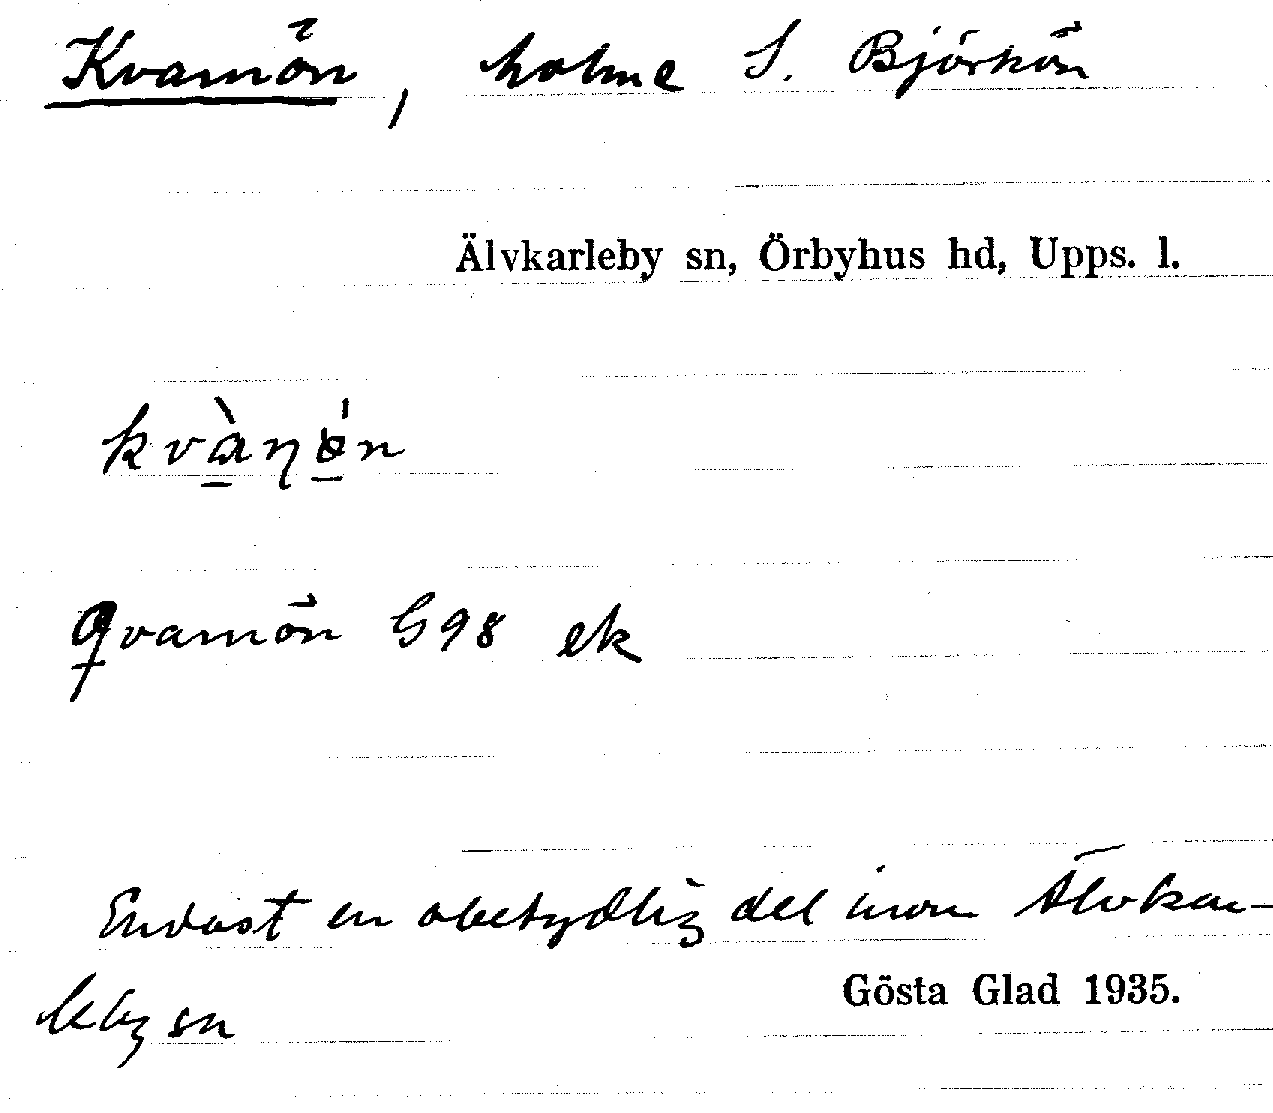 Kvarnön, holme S. Björkön
Älvkarleby sn, Örbyhus hd, Upps. l.
kvàṇǿn
Qvarnön G98 ek
Endast en obetydlig del inom Älvkar-
leby sn
Gösta Glad 1935.